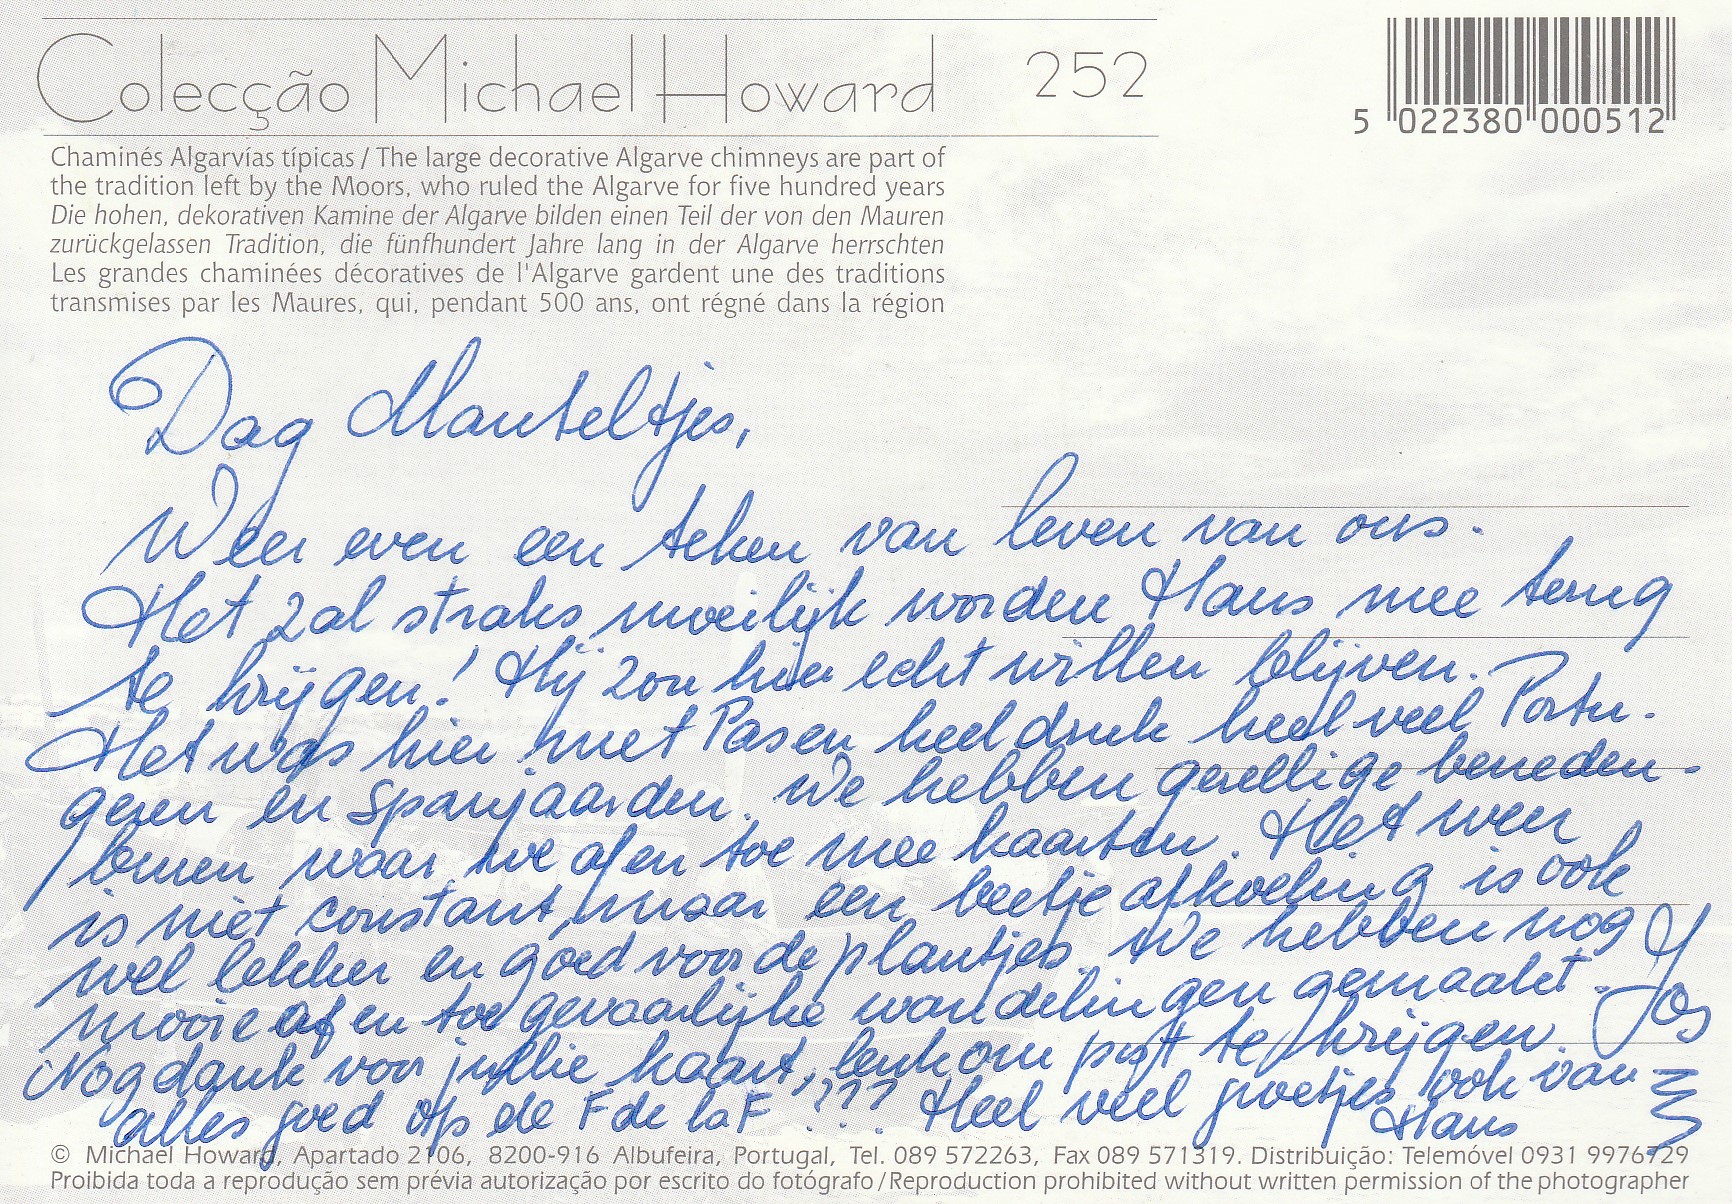 Colecção Michael Howard 252
5 022380 000512
Chaminés Algarvías típicas / The large decorative Algarve chimneys are part of
the tradition left by the Moors, who ruled the Algarve for five hundred years
Die hohen, dekorativen Kamine der Algarve bilden einen Teil der von den Mauren
zurückgelassen Tradition, die fünfhundert Jahre lang in der Algarve herrschten
Les grandes chaminées décoratives de l'Algarve gardent une des traditions
transmises par les Maures, qui, pendant 500 ans, ont régné dans la région
Dag Manteltjes,
Weer even een teken van leven van ons.
Het zal straks moeilijk worden Hans mee terug
te krijgen! Hij zou hier echt willen blijven.
Het was hier met Pasen heel druk heel veel Portu-
gezen en Spanjaarden. We hebben gezellige beneden-
buren waar we af en toe mee kaarten. Het weer
is niet constant, maar een beetje afkoeling is ook
wel lekker en goed voor de plantjes. We hebben nog
mooie af en toe gevaarlijke wandelingen gemaakt.
Nog dank voor jullie kaart, leuk om post te krijgen.
alles goed op de F de la F ??? Heel veel groetjes ook van
Hans
Jos
© Michael Howard, Apartado 2106, 8200-916 Albufeira, Portugal, Tel. 089 572263, Fax 089 571319. Distribuição: Telemóvel 0931 9976729
Proibida toda a reprodução sem prévia autorização por escrito do fotógrafo / Reproduction prohibited without written permission of the photographer